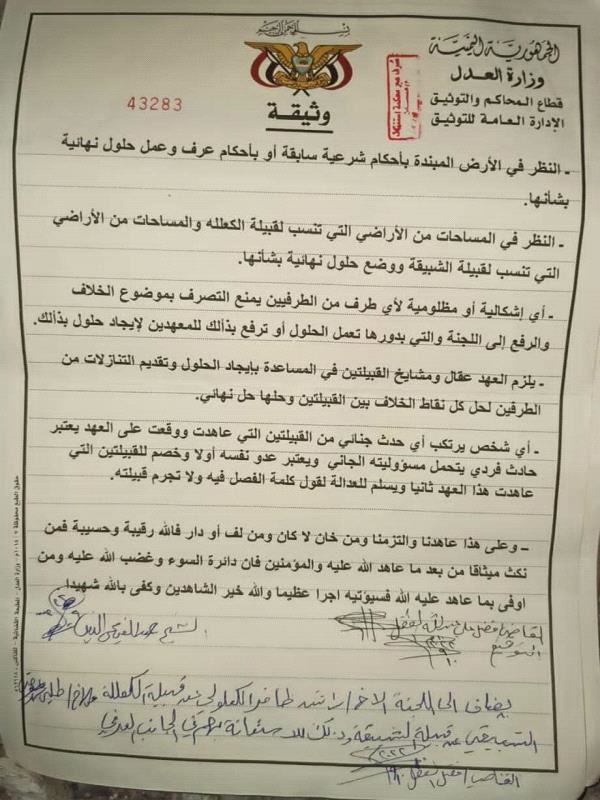 بسم الله الرحمن الرحيم
الجمهورية اليمنية
وزارة العدل
قطاع المحاكم والتوثيق
الإدارة العامة للتوثيق
43283
وثيقة
ـ النظر في الأرض المبندة بأحكام شرعية سابقة أو بأحكام عرف وعمل حلول نهائية
بشأنها.
ـ النظر في المساحات من الأراضي التي تنسب لقبيلة الكعلله والمساحات من الأراضي
التي تنسب لقبيلة الشبيقة ووضع حلول نهائية بشأنها.
ـ أي إشكالية أو مظلومية لأي طرف من الطرفيين يمنع التصرف بموضوع الخلاف
والرفع إلى اللجنة والتي بدورها تعمل الحلول أو ترفع بذألك للمعهدين لإيجاد حلول بذألك.
ـ يلزم العهد عقال ومشايخ القبيلتين في المساعدة بإيجاد الحلول وتقديم التنازلات من
الطرفين لحل كل نقاط الخلاف بين القبيلتين وحلها حل نهائي.
ـ أي شخص يرتكب أي حدث جنائي من القبيلتين التي عاهدت ووقعت على العهد يعتبر
حادث فردي يتحمل مسؤوليته الجاني ويعتبر عدو نفسه أولا وخصم للقبيلتين التي
عاهدت هذا العهد ثانيا ويسلم للعدالة لقول كلمة الفصل فيه ولا تجرم قبيلته.
ـ وعلى هذا عاهدنا والتزمنا ومن خان لا كان ومن لف أو دار فالله رقيبة وحسيبة فمن
نكث ميثاقا من بعد ما عاهد الله عليه والمؤمنين فان دائرة السوء وغضب الله عليه ومن
اوفى بما عاهد عليه الله فسيؤتيه اجرا عظيما والله خير الشاهدين وكفى بالله شهيدا
القاضي فضل علي عبدالله
التوقيع
الشيخ
يضاف الى اللجنة الاخ / راشد الكعلولي عن قبيلة الكعللة والاخ /
الشبيقي عن قبيلة الشبيقة وذلك للاستعانة بهم في الجانب العرفي
القاضي فضل